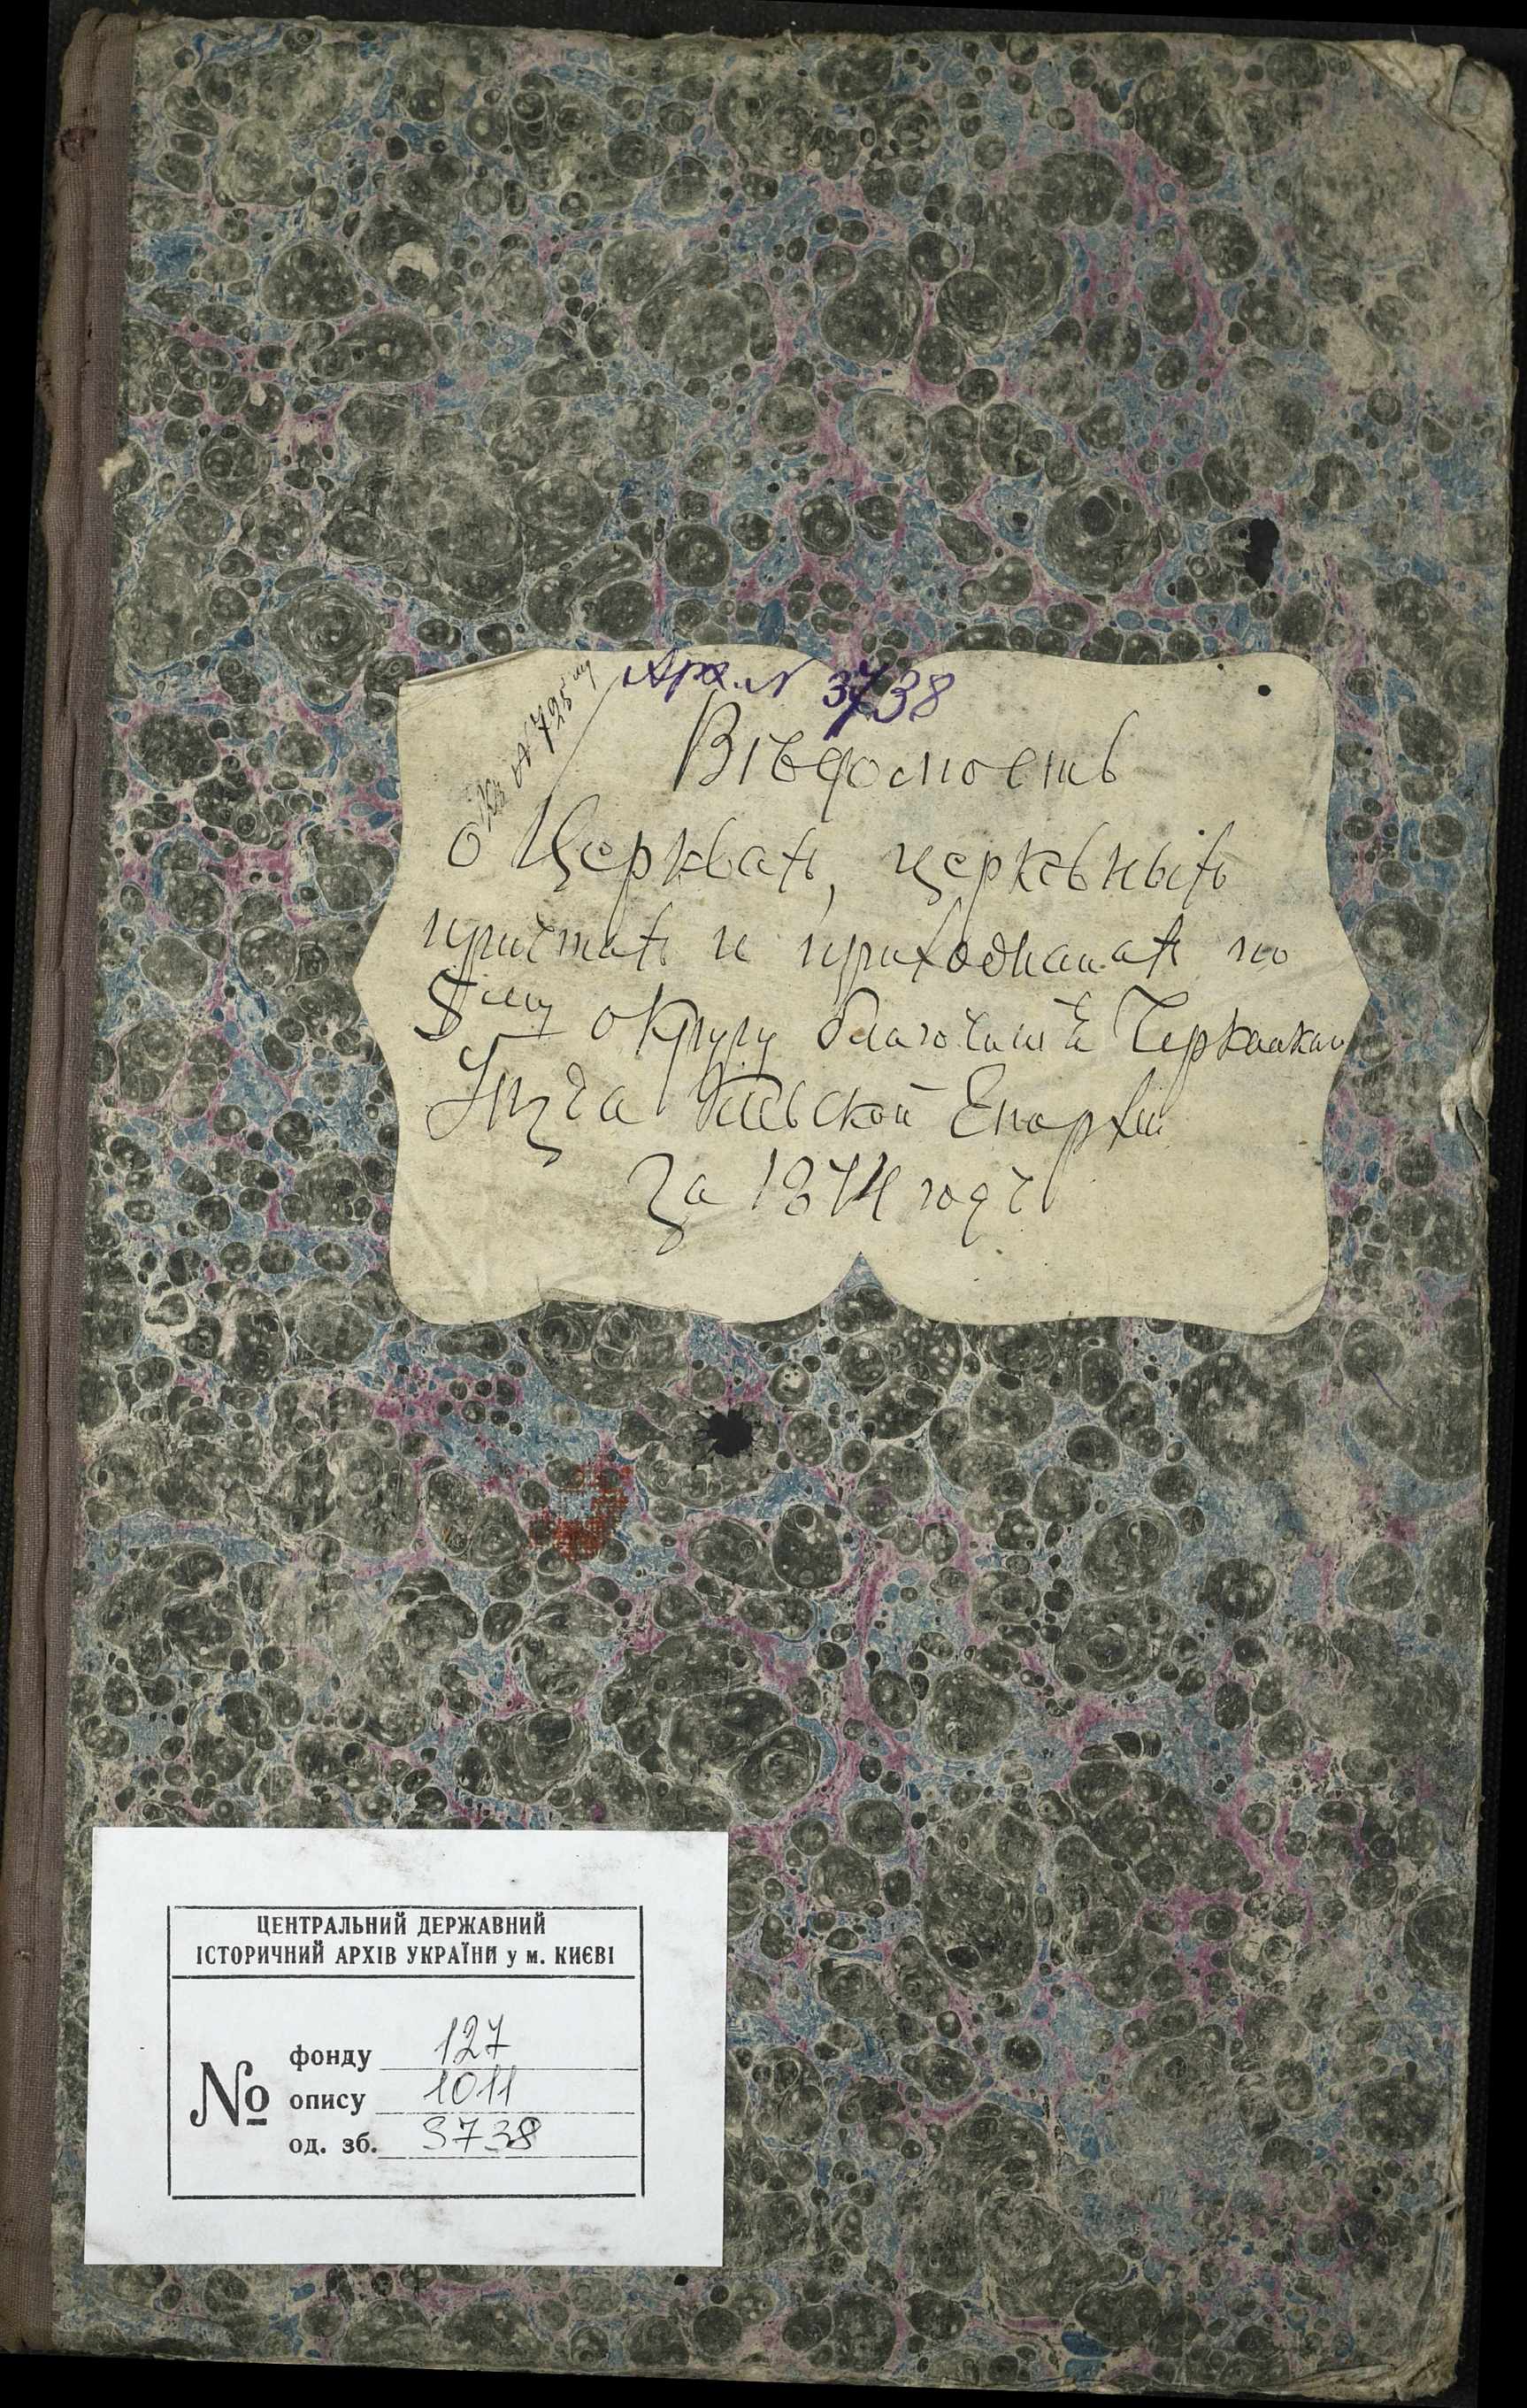 Арх. № 3738
Къ № 795му
Вѣдомость
о Церквахъ, церковныхъ
причтахъ и прихожанахъ по
5му округу благочинія Черкаскаго
Уѣзда Кіевской Епархіи
За 1874 годъ
ЦЕНТРАЛЬНИЙ ДЕРЖАВНИЙ
ІСТОРИЧНИЙ АРХІВ УКРАЇНИ у м. КИЄВІ
№
фонду 127
опису 1011
од. зб. 3738